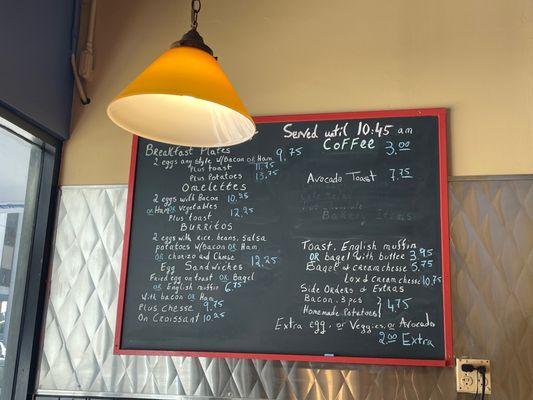 Served until 10:45 am
Breakfast Plates
2 eggs any style w/Bacon or Ham 9.75
Plus toast 11.75
Plus Potatoes 13.75
Omelettes
2 eggs with Bacon 10.25
or Ham or Vegetables
Plus toast 12.25
Burritos
2 eggs with rice, beans, salsa
potatoes w/Bacon or Ham
or chorizo and Cheese 12.25
Egg Sandwiches
Fried egg on toast or Bagel
or English muffin 6.75
With bacon or Ham
Plus cheese 9.75
On Croissant 10.25
Coffee 3.00
Avocado Toast 7.75
Bakery Items
Toast, English muffin
or bagel with butter 3.95
Bagel & cream cheese 5.75
Lox & cream cheese 10.75
Side Orders & Extras
Bacon, 3 pcs
Homemade Potatoes } 4.75
Extra egg, or Veggies, or Avocado
2.00 Extra